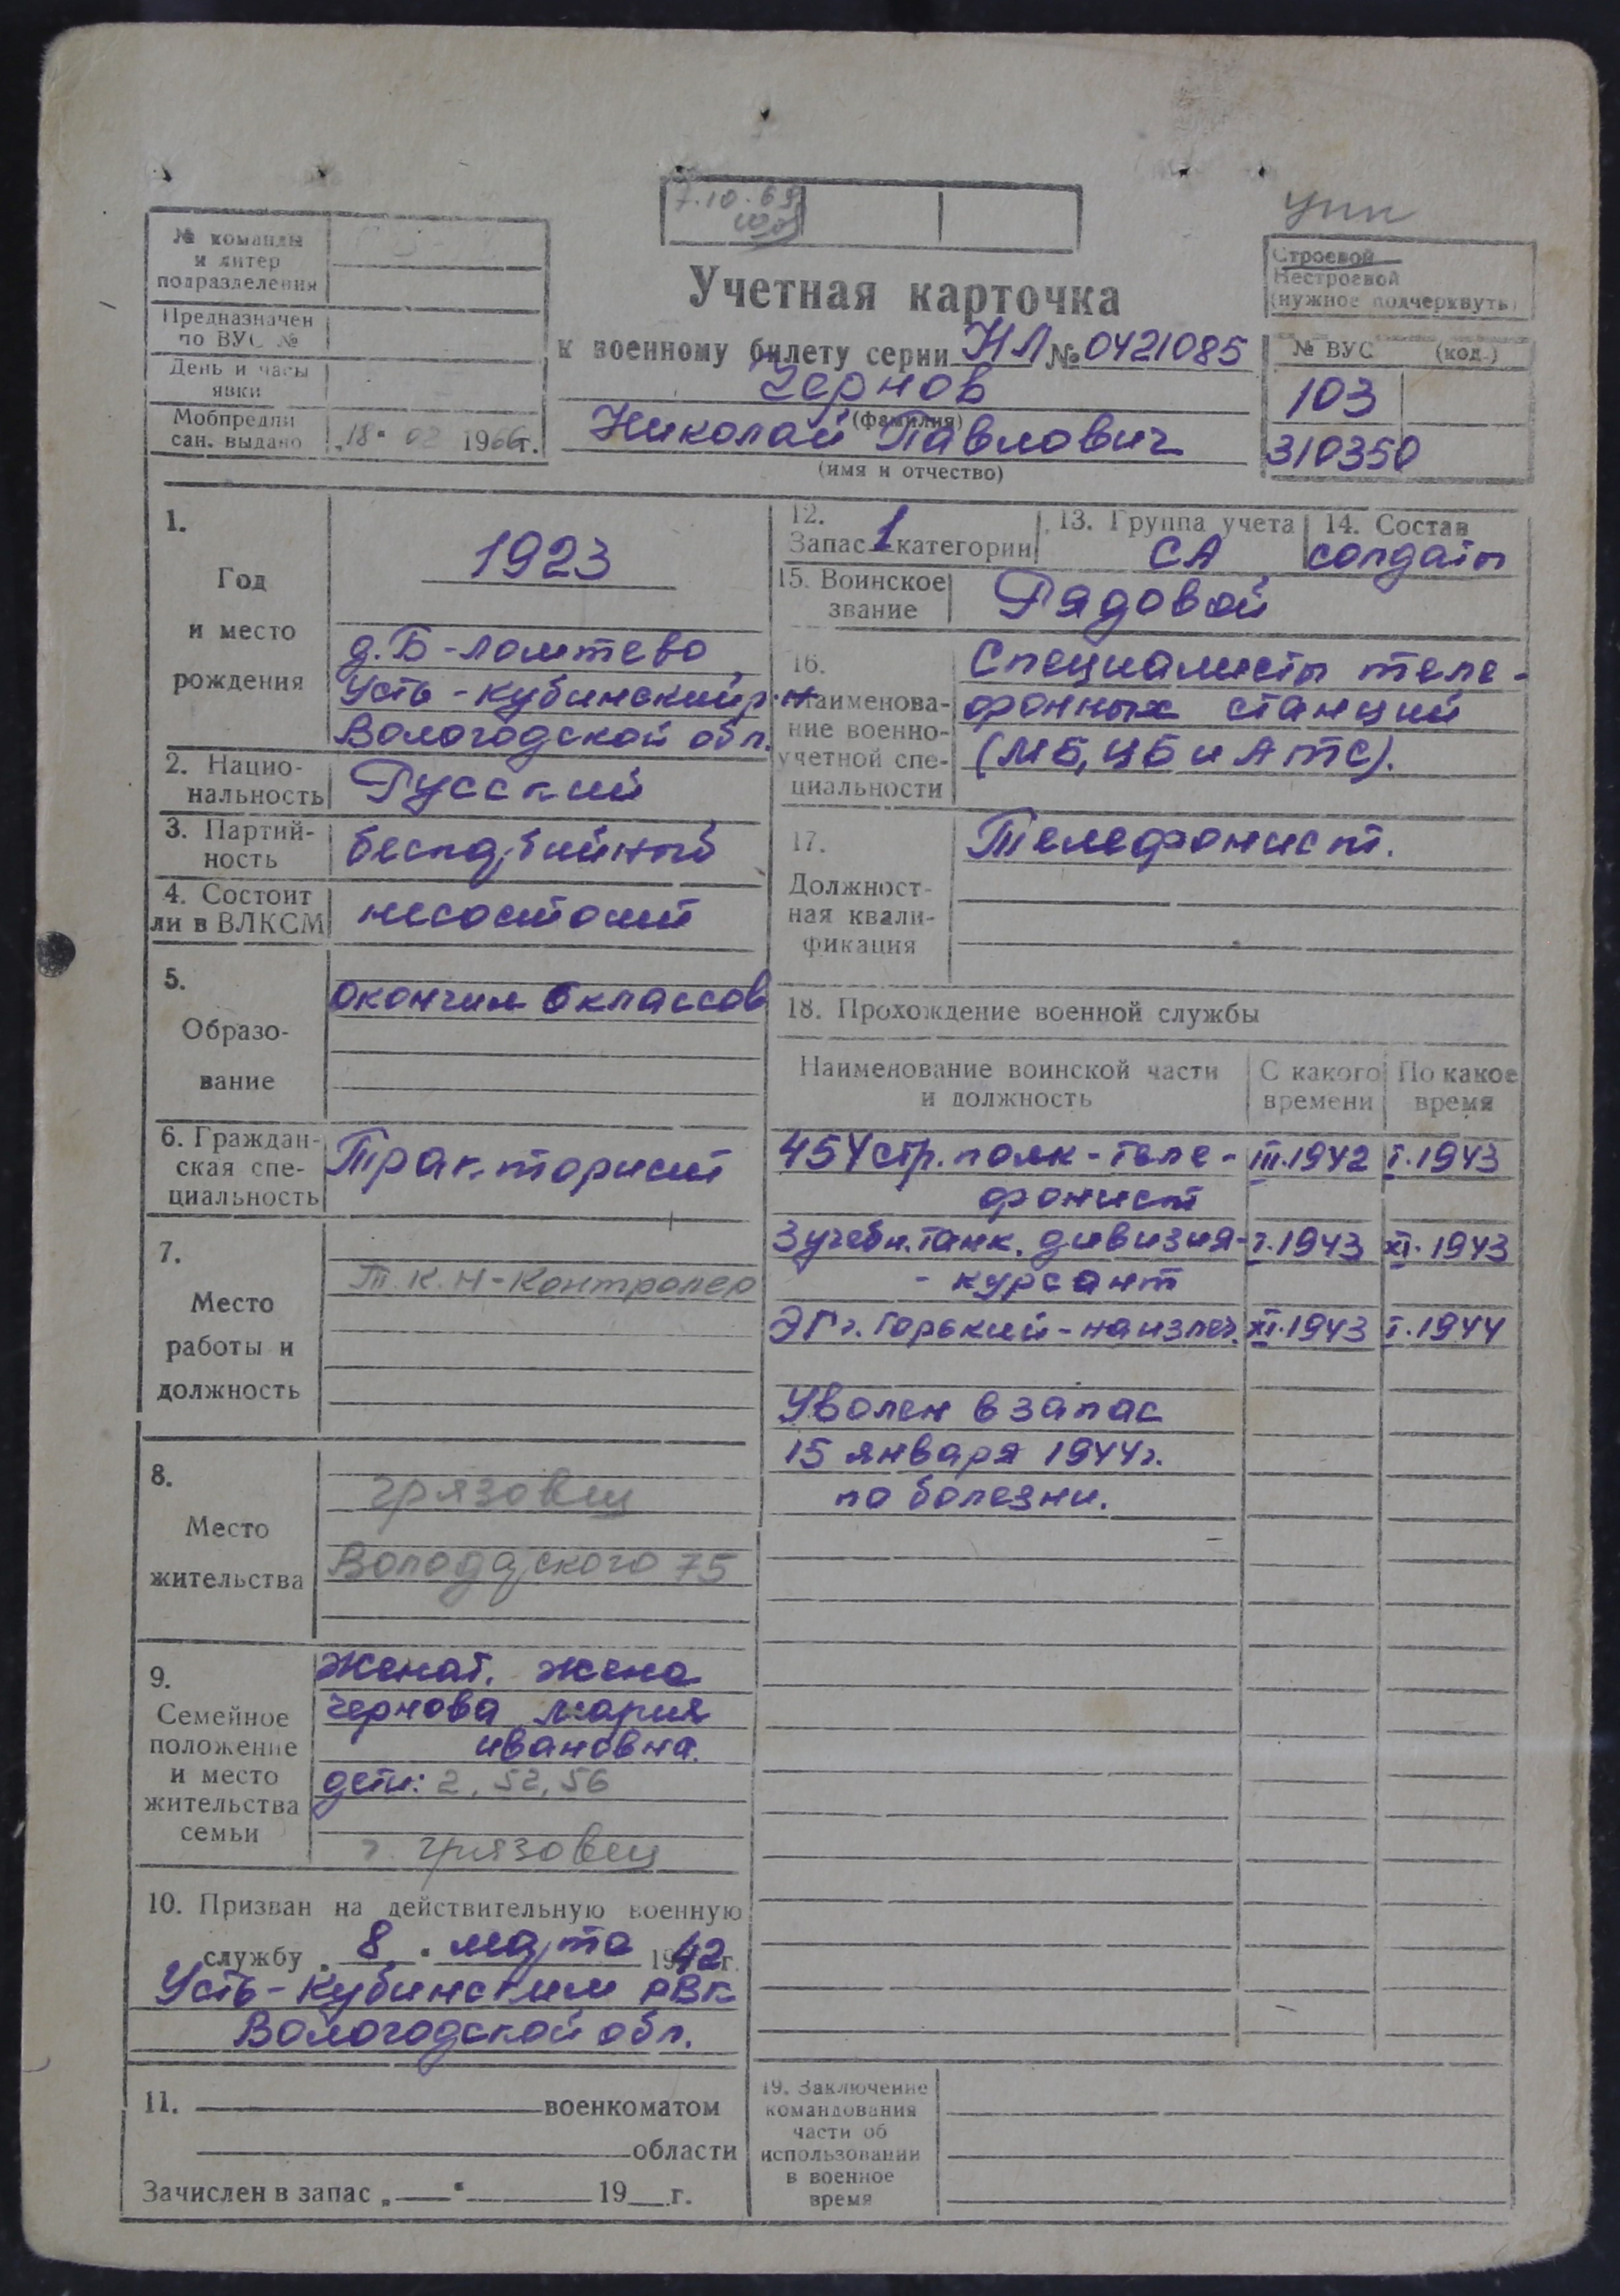 7.10.69
упк
№ команды
и литер
подразделения
Предназначен
по ВУС №
День и часы
явки
Мобпредпи
сан. выдано „18" 02 1966г.
Учетная карточка
к военному билету серии НЛ № 0421085
Чернов
(фамилия)
Николай Павлович
(имя и отчество)
Строевой
Нестроевой
(нужное подчеркнуть)
№ ВУС (код.)
103
310350
1.
Год
и место
рождения
1923
д. Б-Ломтево
Усть-Кубинский р.
Вологодской обл.
2. Нацио-
нальность
Русский
3. Партий-
ность
беспартийный
4. Состоит
ли в ВЛКСМ
несостоит
5.
Образо-
вание
окончил 6 классов
6. Граждан-
ская спе-
циальность
Тракторист
7.
Место
работы и
должность
Т.К.Н-Контролер
8.
Место
жительства
Грязовец
Володарского 75
9.
Семейное
положение
и место
жительства
семьи
Женат. жена
Чернова Мария
Ивановна.
дети: 2, 52, 56
г. Грязовец
10. Призван на действительную военную
службу „8" марта 1942г.
Усть-Кубинским РВК
Вологодской обл.
11. военкоматом
области
Зачислен в запас „ " 19 г.
12.
Запас 1 категории
13. Группа учета
СА
14. Состав
солдаты
15. Воинское
звание
Рядовой
16.
Наименова-
ние военно-
учетной спе-
циальности
Специалисты теле-
фонных станций
(МБ, ЦБ и АТС).
17.
Должност-
ная квали-
фикация
Телефонист.
18. Прохождение военной службы
Наименование воинской части
и должность
С какого
времени
По какое
время
454 стр. полк - теле- III.1942 I.1943
фонист
3 учебн. танк. дивизия- I.1943 XI.1943
- курсант
ЭГ г. Горький - на излеч. XI.1943 I.1944
Уволен в запас
15 января 1944г.
по болезни.
19. Заключение
командования
части об
использовании
в военное
время